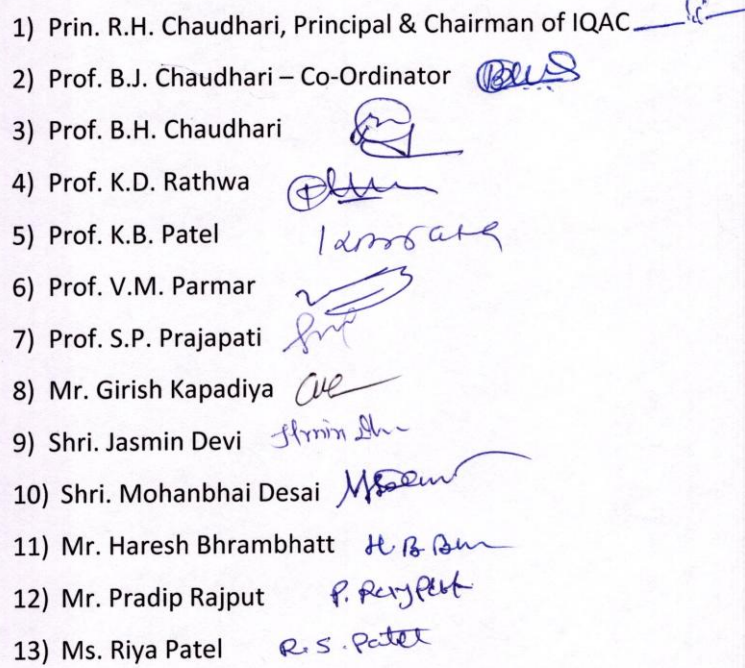 1) Prin. R.H. Chaudhari, Principal & Chairman of IQAC
2) Prof. B.J. Chaudhari – Co-Ordinator
3) Prof. B.H. Chaudhari
4) Prof. K.D. Rathwa
5) Prof. K.B. Patel
6) Prof. V.M. Parmar
7) Prof. S.P. Prajapati
8) Mr. Girish Kapadiya
9) Shri. Jasmin Devi
10) Shri. Mohanbhai Desai
11) Mr. Haresh Bhrambhatt H B
12) Mr. Pradip Rajput P.
13) Ms. Riya Patel R.S. Patel